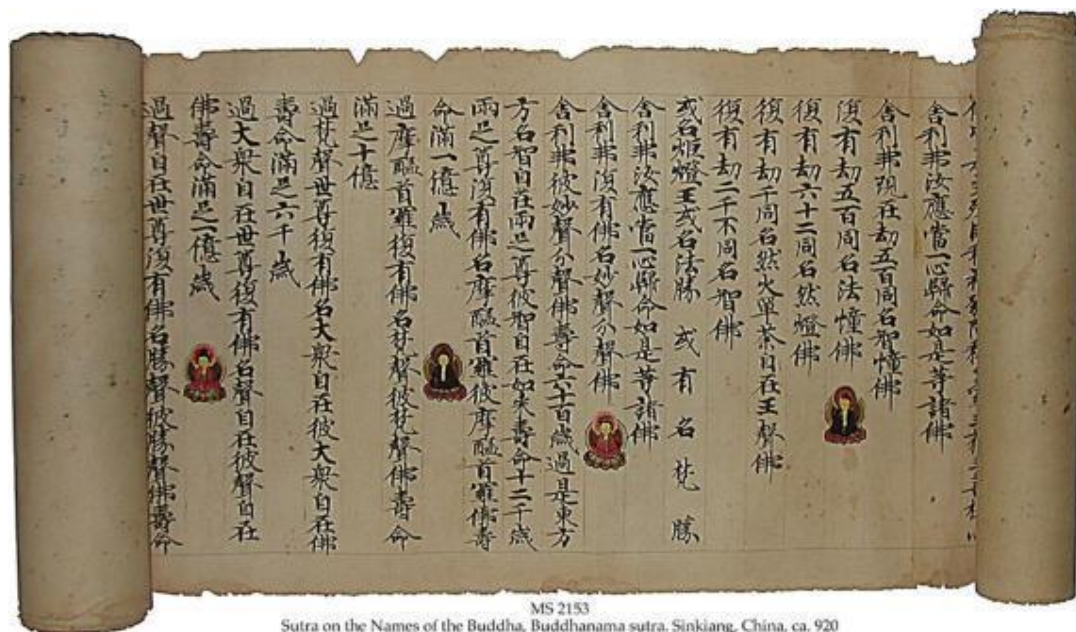 舍利弗汝應當一心歸命如是等諸佛
舍利弗現在劫五百同名智幢佛
復有劫五百同名法幢佛
復有劫六十二同名然燈佛
復有劫千同名然火單荼自在王聲佛
復有劫二千不同名智佛
或名炬燈王或名法勝 或有名梵勝
舍利弗汝應當一心歸命如是等諸佛
舍利弗復有佛名妙聲分聲佛
舍利弗彼妙聲分聲佛壽命六十百歲過是東方
方名智自在兩足尊彼智自在如來壽命十二千歲
兩足尊復有佛名摩醯首羅彼摩醯首羅佛壽
命滿一億歲
過摩醯首羅復有佛名梵聲彼梵聲佛壽命
滿足十億
過梵聲世尊復有佛名大衆自在彼大衆自在佛
壽命滿足六千歲
過大衆自在世尊復有佛名聲自在彼聲自在
佛壽命滿足一億歲
過聲自在世尊復有佛名勝聲彼勝聲佛壽命
MS 2153
Sutra on the Names of the Buddha, Buddhanama sutra. Sinkiang, China, ca. 920